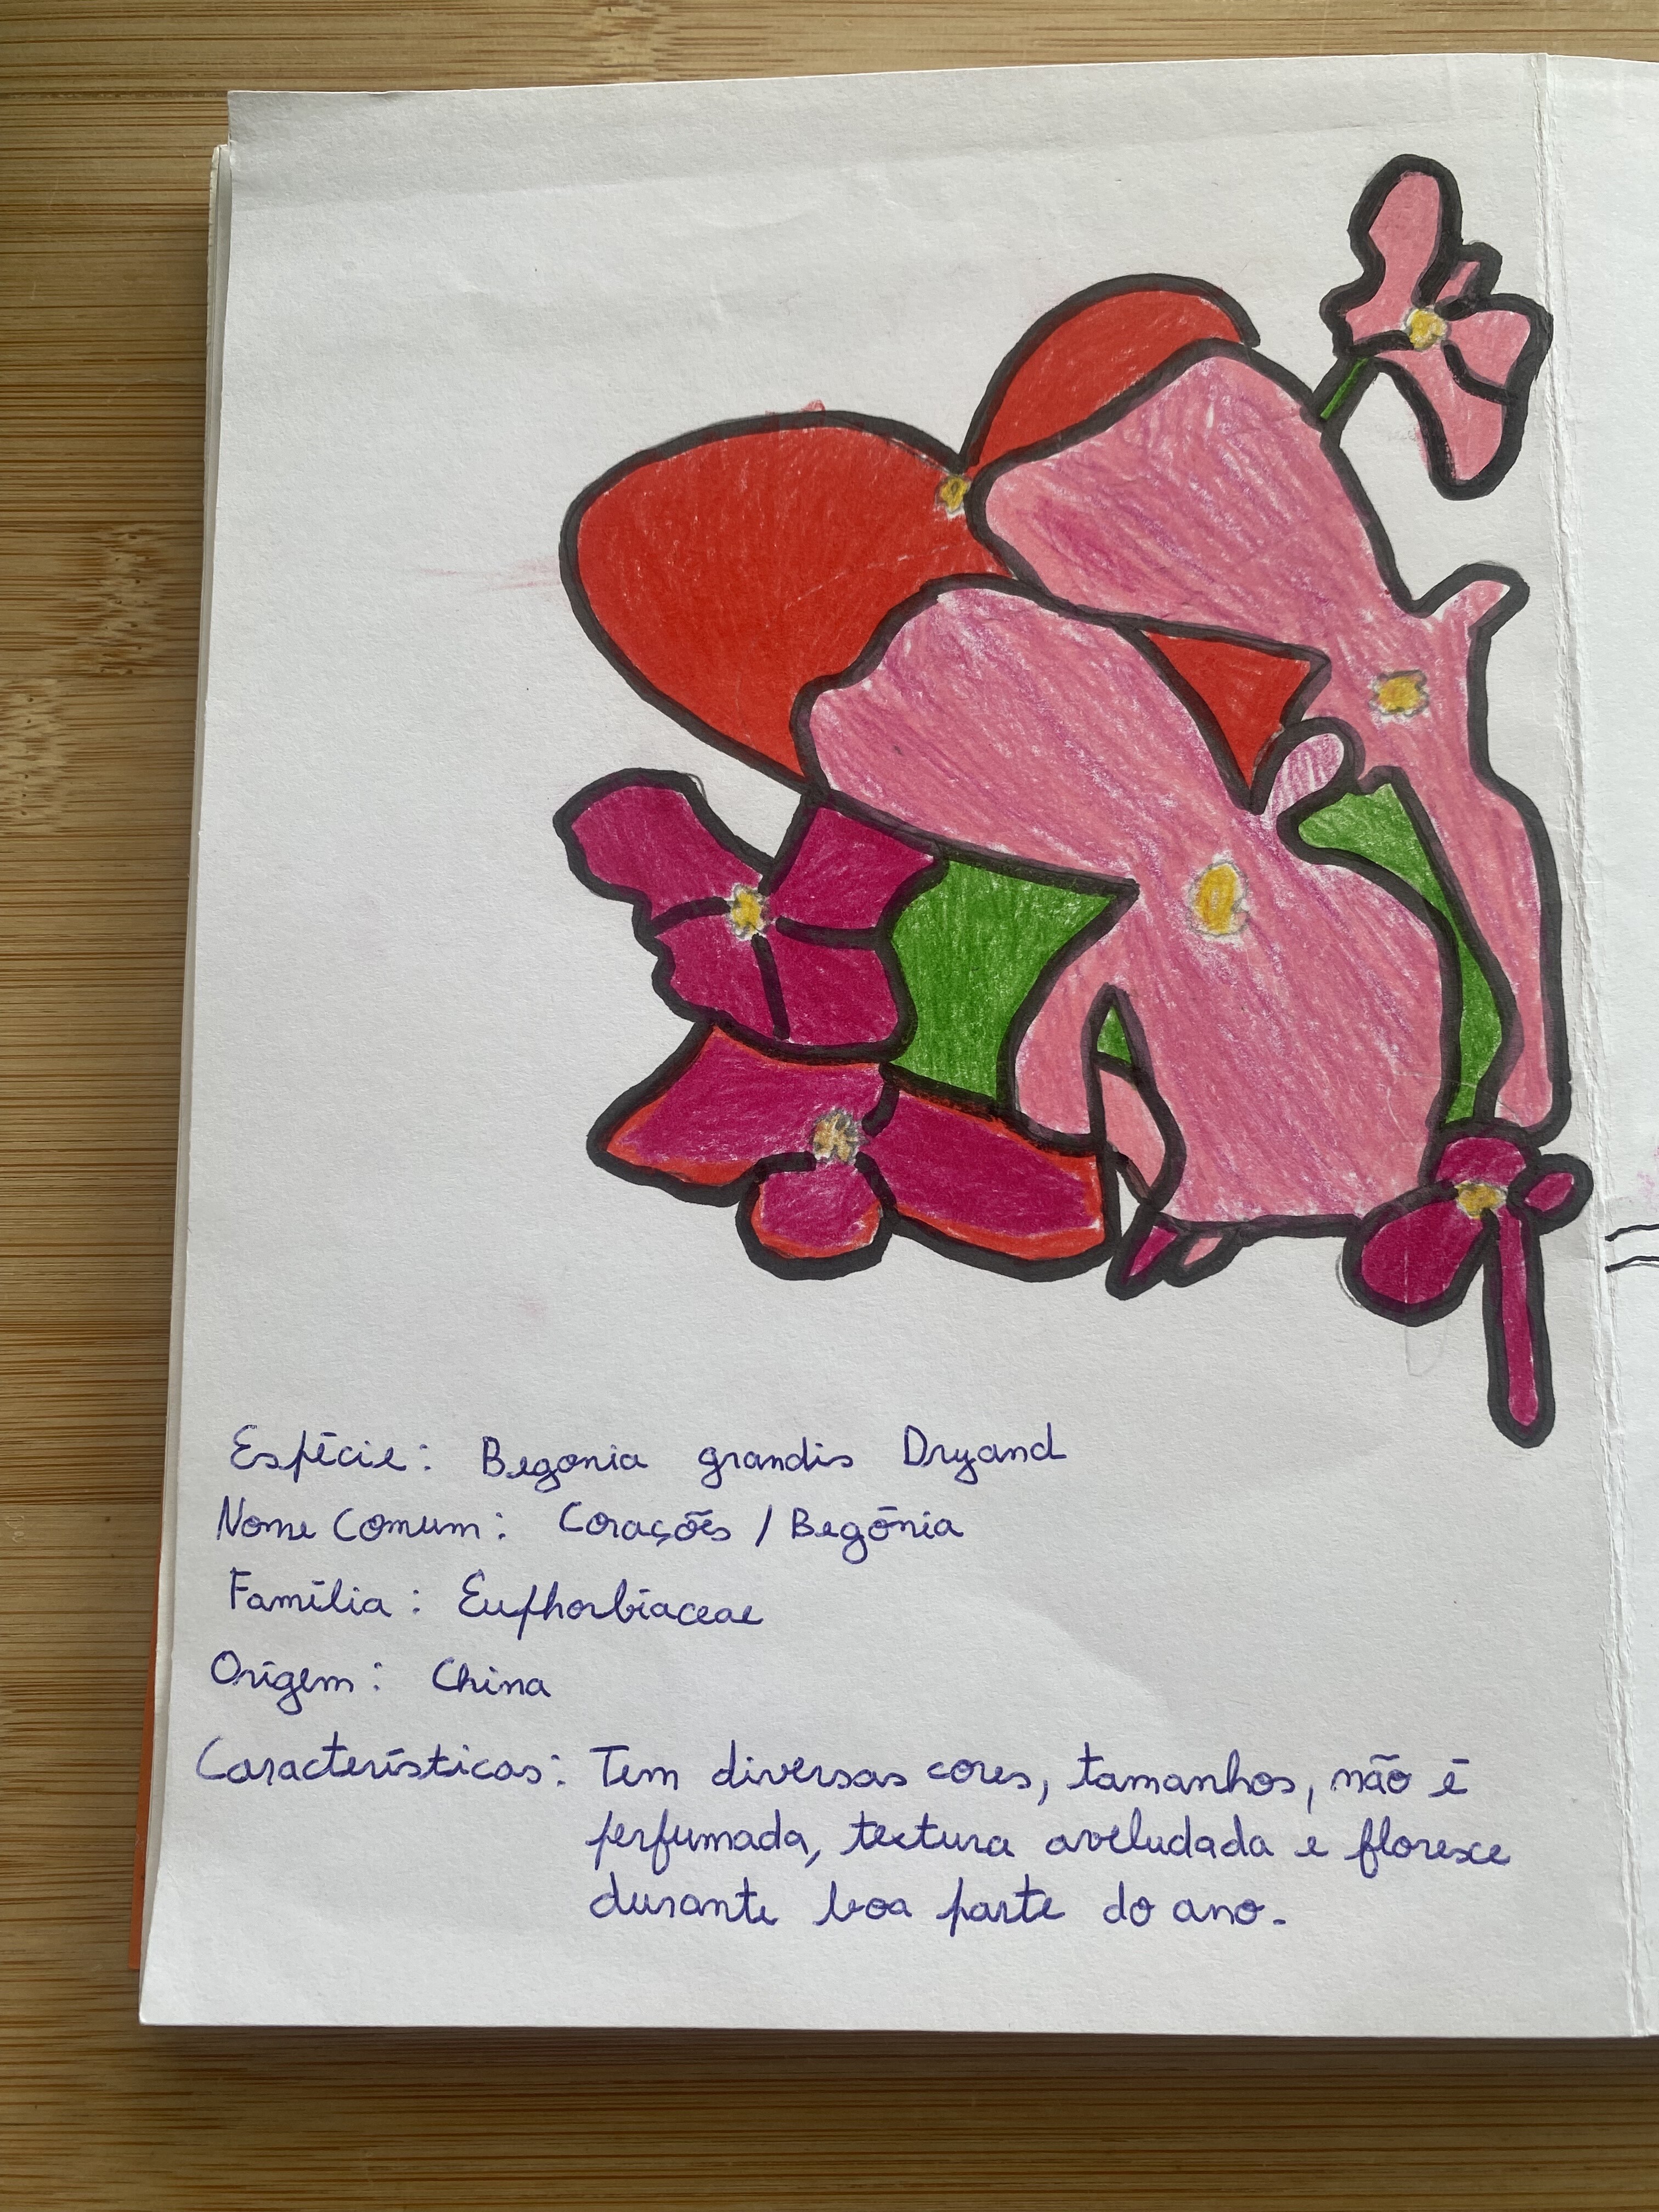 Espécie: Begonia grandis Dryand
Nome Comum: Corações / Begónia
Família: Euphorbiaceae
Origem: China
Características: Tem diversas cores, tamanhos, não é
perfumada, textura aveludada e floresce
durante boa parte do ano.